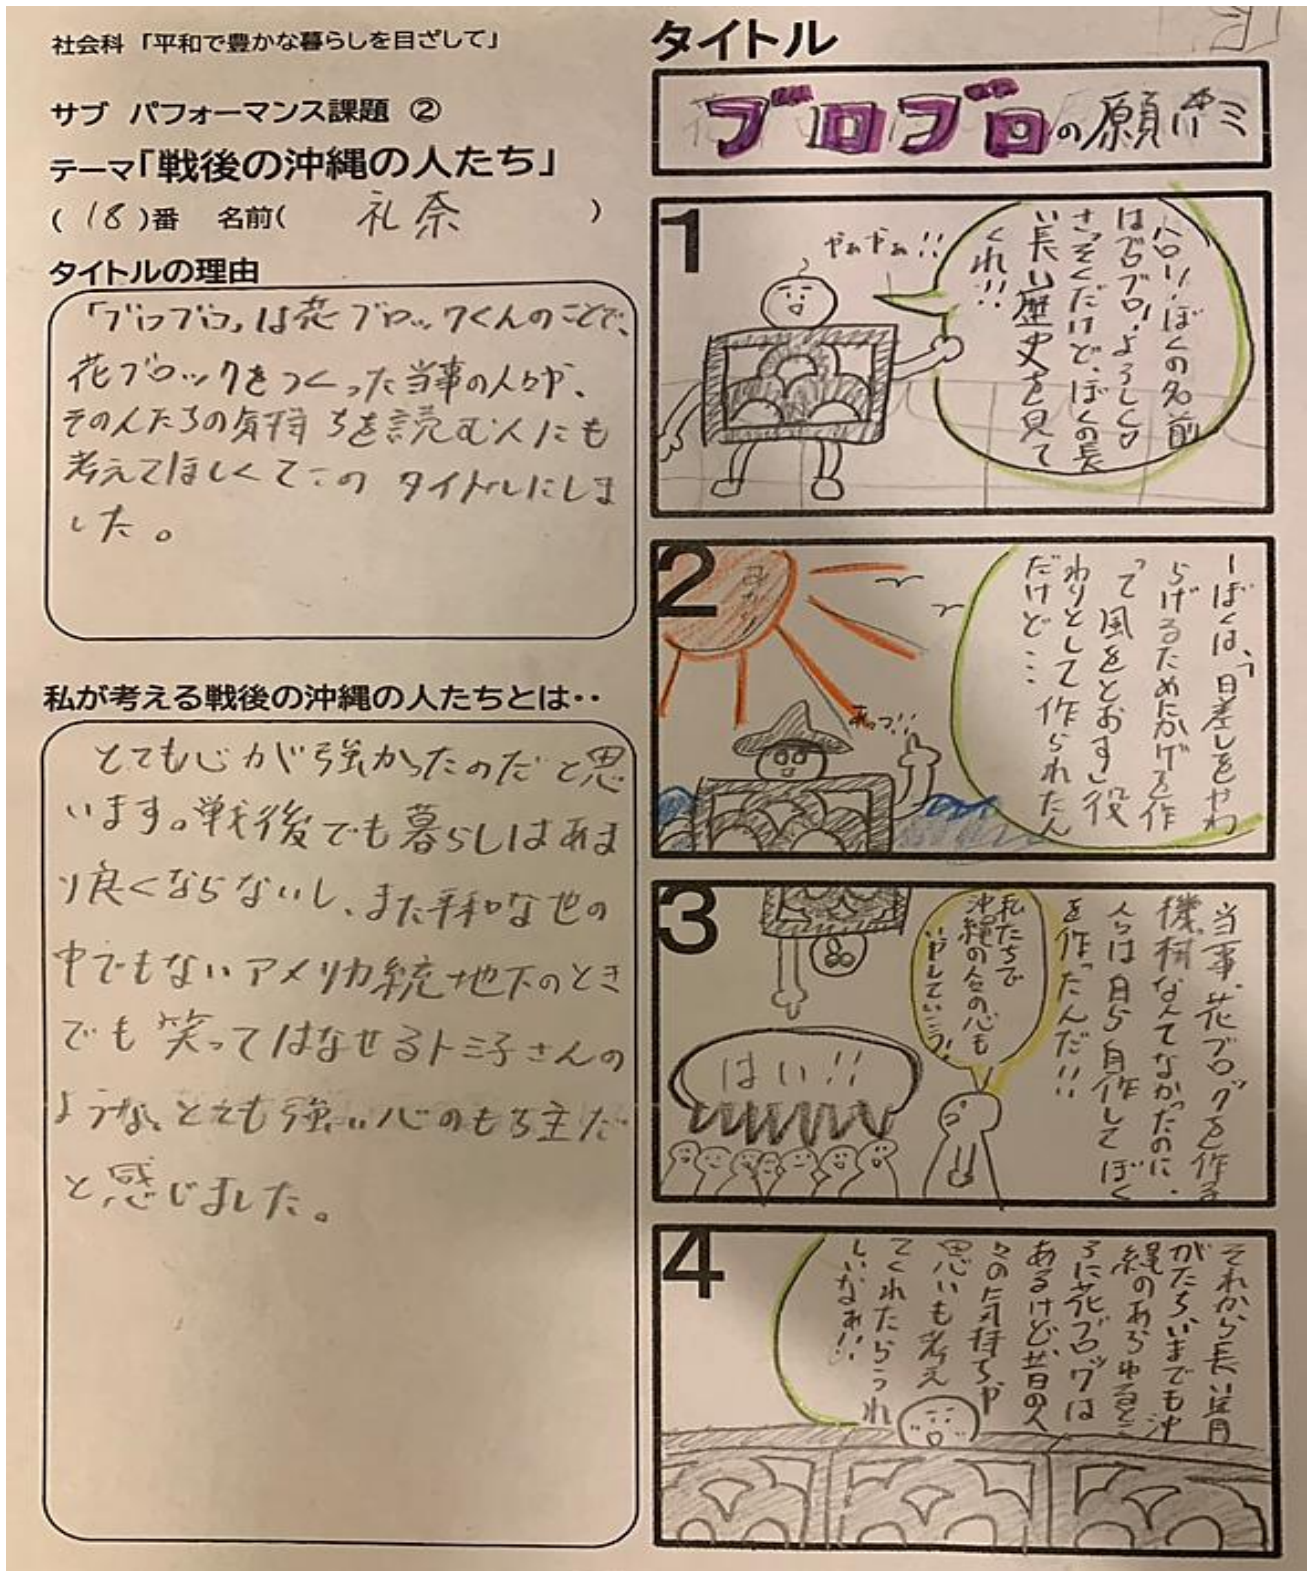 社会科「平和で豊かな暮らしを目ざして」
サブ パフォーマンス課題 ②
テーマ「戦後の沖縄の人たち」
(18)番 名前( 礼奈 )
タイトルの理由
「ブロブロ」は花ブロックくんのことで、
花ブロックをつくった当事の人々や、
その人たちの気持ちを読む人にも
考えてほしくてこの タイトルにしま
した。
私が考える戦後の沖縄の人たちとは‥
とても心が強かったのだと思
います。戦後でも暮らしはあま
り良くならないし、また平和な世の
中でもないアメリカ統地下のとき
でも笑ってはなせるトミ子さんの
ような、とても強い心のもち主だ
と感じました。
タイトル
ブロブロの願い
1
ハロー!ぼくの名前
はブロブロ!よろしくロ
さっそくだけど、ぼくの長
い長い歴史を見て
くれ!!
やぁやぁ!!
2
ーぼくは、「日差しをやわ
らげるためにかげを作
って風をとおす」役
わりとして作られたん
だけど…
あっつ!!
3
当事、花ブロックを作る
機材なんてなかったのに、
人らは自ら自作してぼく
を作ったんだ!!
私たちで
沖縄の人の心も
いやしていこう!
はい!!
4
それから長い月
がたちいまでも沖
縄のあらゆるとこ
ろに花ブロックは
あるけど、昔の人
々の気持ちや
思いも考え
てくれたらうれ
しいなぁ!!